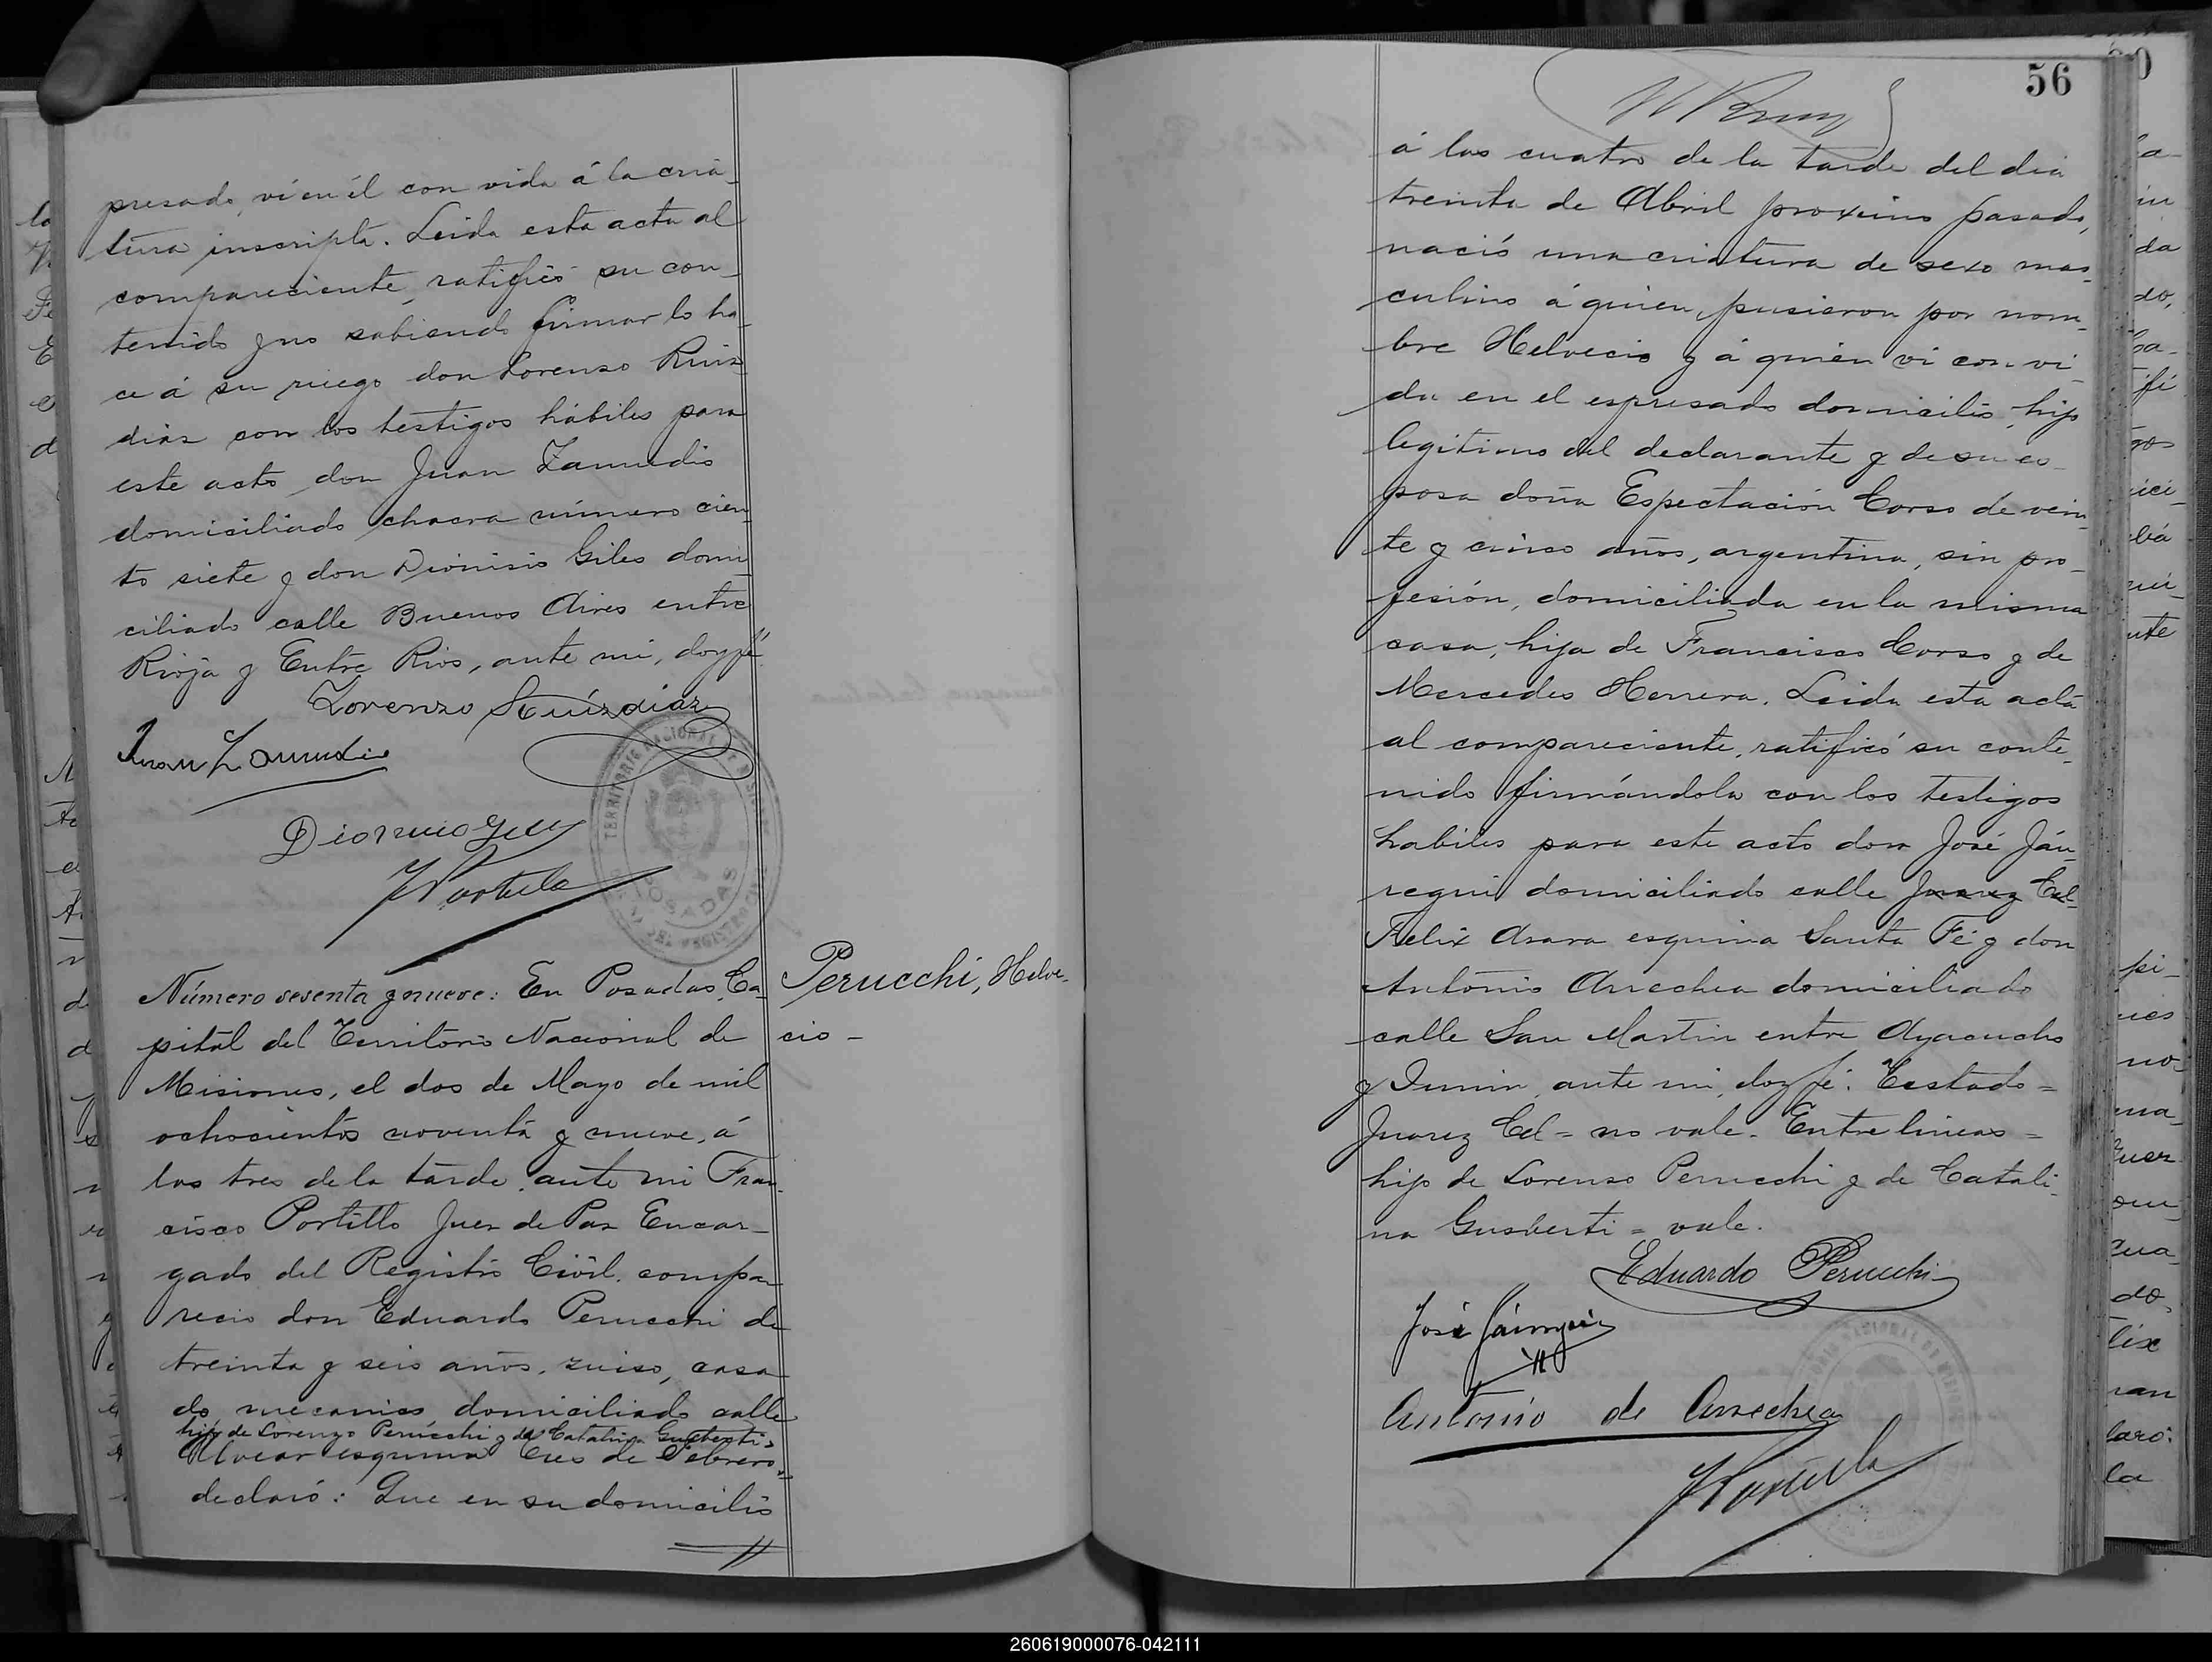 presado, ví en él con vida á la cria-
tura inscripta. Leida esta acta al
compareciente, ratificó su con-
tenido y no sabiendo firmar lo ha-
ce á su ruego don Lorenzo Ruiz
diaz con los testigos hábiles para
este acto don Juan Zamudio
domiciliado chacra número cien-
to siete y don Dionisio Giles domi-
ciliado calle Buenos Aires entre
Rioja y Entre Rios, ante mi, doy fé
Lorenzo Ruízdiaz
Juan Zamudio
TERRITORIO NACIONAL DE MISIONES
POSADAS
Número sesenta y nueve: En Posadas, Ca-
pital del Territorio Nacional de
Misiones, el dos de Mayo de mil
ochocientos noventa y nueve, á
las tres de la tarde, ante mi Fran-
cisco Portillo Juez de Paz Encar-
gado del Registro Civil, compa-
recio don Eduardo Perucchi de
treinta y seis años, zuizo, casa
do mecanico, domiciliado calle
hijo de Lorenzo Perucchi y de Catalina Gusberti
Alvear esquina Tres de Febrero,
declaró: Que en su domicilio
Perucchi, Helve-
cio -
56
á las cuatro de la tarde del dia
treinta de Abril proximo pasado,
nació una criatura de sexo mas-
culino á quien, pusieron por nom-
bre Helvecio y á quién vi con vi-
da en el espresado domicilio, hijo
legitimo del declarante y de su es-
posa doña Espectación Corso de vein-
te y cinco años, argentina, sin pro-
fesión, domiciliada en la misma
casa, hija de Francisco Corso y de
Mercedes Herrera. Leida esta acta
al compareciente, ratificó su conte-
nido firmándola con los testigos
habiles para este acto don José Jáu-
regui domiciliado calle Juarez Cel-
Felix Azara esquina Santa Fé y don
Antonio Arrechea domiciliado
calle San Martin entre Ayacucho
y Junin, ante mi, doy fé. Testado =
Juarez Cel = no vale. Entre lineas =
hijo de Lorenzo Perucchi y de Catali-
na Gusberti = vale.
Eduardo Perucchi
José Jáuregui
Antonio de Arrechea
260619000076-042111